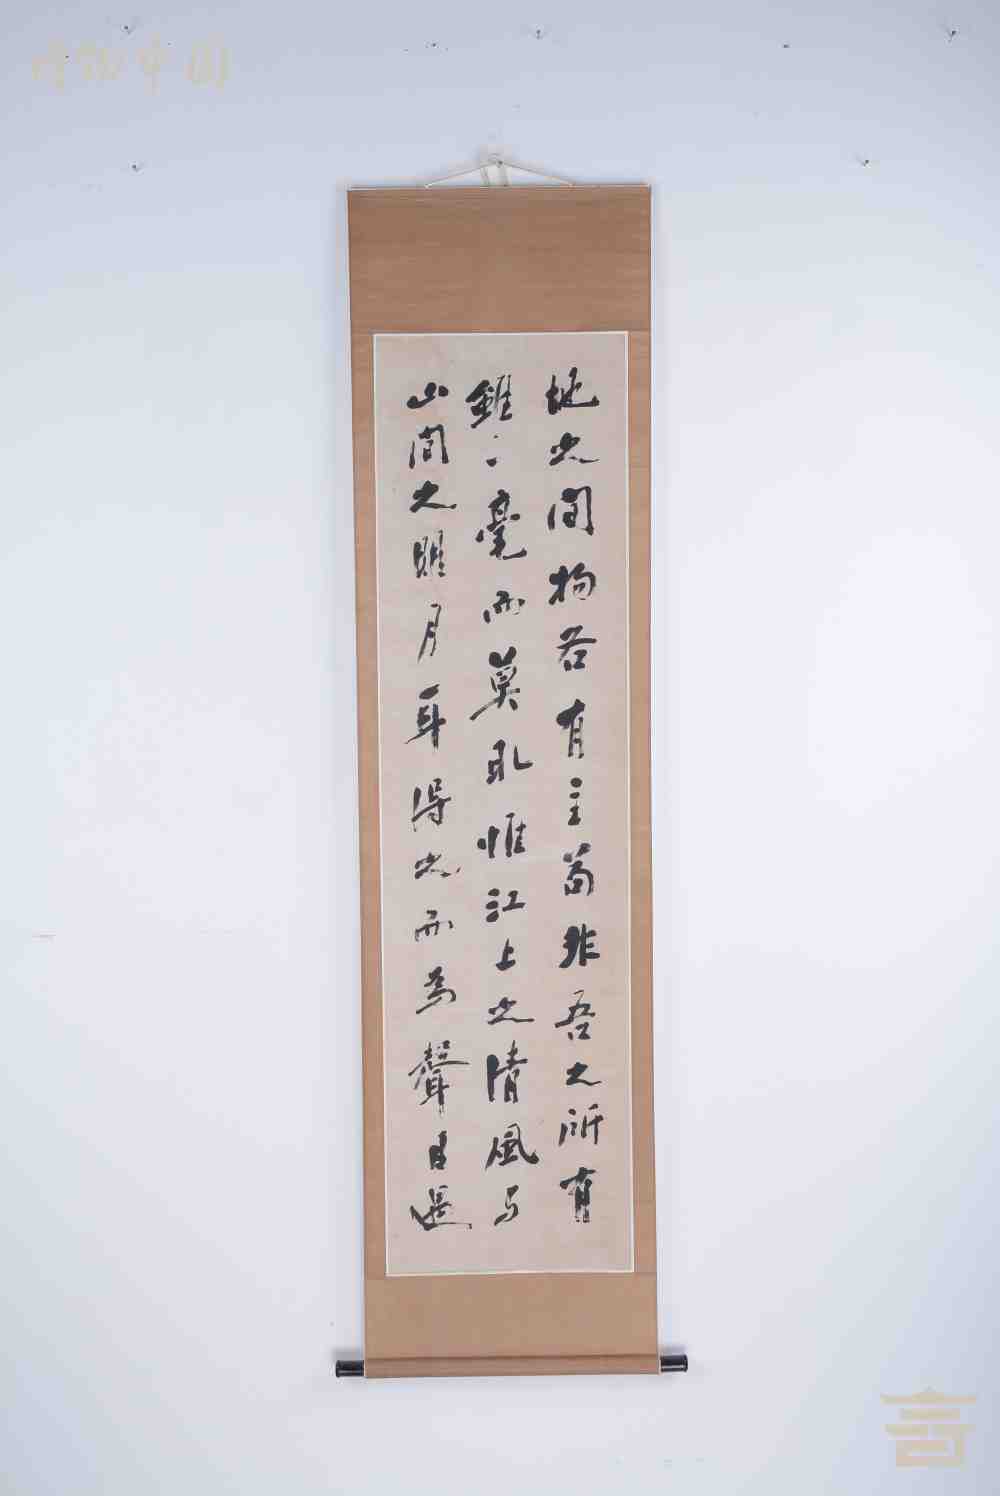 博物中国
地之間物各有主苟非吾之所有
雖一毫而莫取惟江上之清風与
山間之明月耳得之而為聲目遇